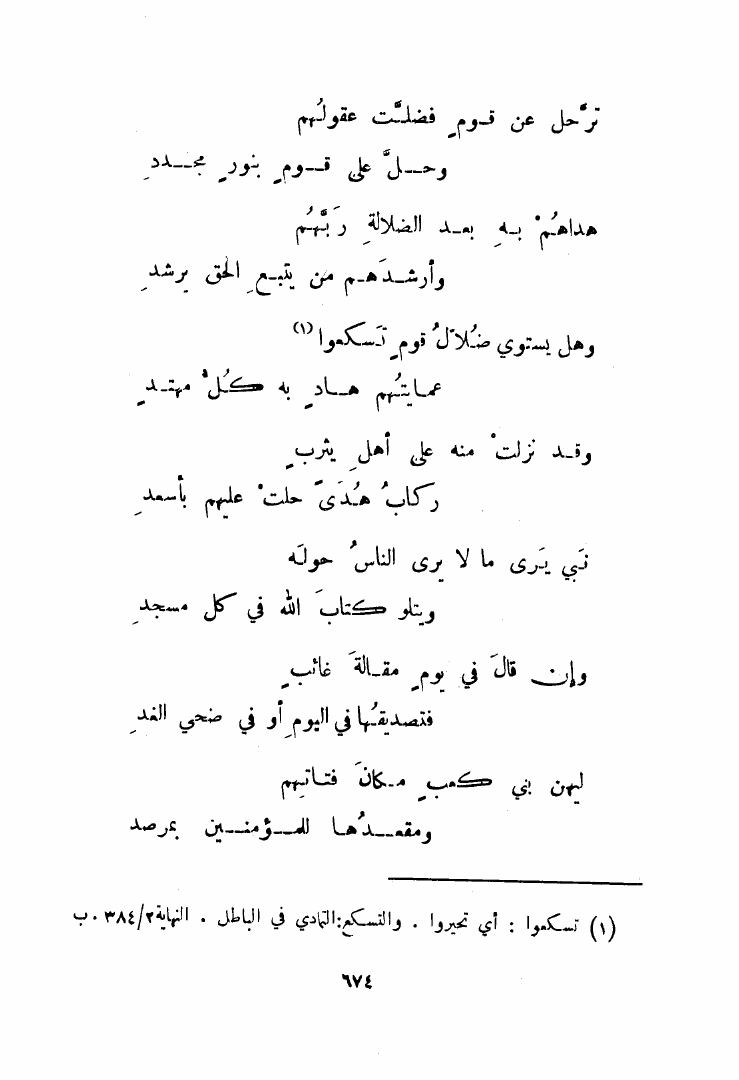 ترَّحل عن قومٍ فضلَّت عقولُهم
وحلَّ على قومٍ بنورٍ مجددِ
هداهُمْ بهِ بعد الضلالةِ رَبَّهُم
وأرشدَهم من يتبعِ الحق يرشدِ
وهل يستوي ضُلاّلُ قومٍ تَسكعوا (١)
عمايتُهم هادٍ به كُلْ مهتدٍ
وقد نزلتْ منه على أهلِ يثربٍ
ركابُ هُدَىً حلتْ عليهم بأسعدِ
نَبي يَرى ما لا يرى الناسُ حولَه
ويتلو كتابَ الله في كل مسجدِ
وإن قالَ في يومٍ مقالةَ غائبٍ
فتصديقُها في اليومِ أو في ضحي الغدِ
ليهن بني كعبٍ مكانَ فتاتِهم
ومقعدُها للمؤمنين بمرصد
(١) تسكعوا : أي تحيروا . والتسكع:التمادي في الباطل . النهاية٣٨٤/٢ . ب
٦٧٤